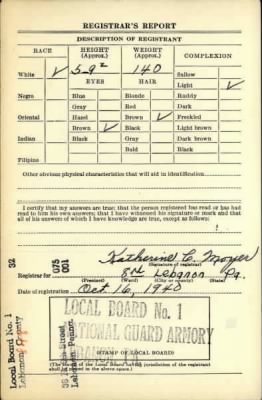 REGISTRAR'S REPORT
DESCRIPTION OF REGISTRANT
RACE HEIGHT (Approx.) WEIGHT (Approx.) COMPLEXION
White ✓ 5-9½ 140 Sallow
EYES HAIR Light ✓
Negro Blue Blonde Ruddy
Gray Red Dark
Oriental Hazel Brown ✓ Freckled
Brown ✓ Black Light brown
Indian Black Gray Dark brown
Bald Black
Filipino
Other obvious physical characteristics that will aid in identification
I certify that my answers are true; that the person registered has read or has had read to him his own answers; that I have witnessed his signature or mark and that all of his answers of which I have knowledge are true, except as follows:
Katherine C. Moyer
(Signature of registrar)
Registrar for 3rd Lebanon Pa.
(Precinct) (Ward) (City or county) (State)
Date of registration Oct 16, 1940
LOCAL BOARD No. 1
NATIONAL GUARD ARMORY
(STAMP OF LOCAL BOARD)
(The stamp of the Local Board having jurisdiction of the registrant shall be placed in the above space.)
Local Board No. 1 32
Lebanon County 075
001
Street,
Lebanon, Penna.